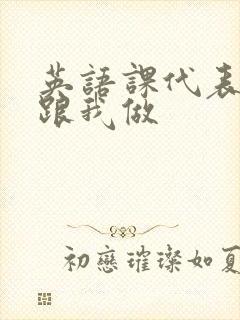 英語課代表
跟我做
初戀璀璨如夏